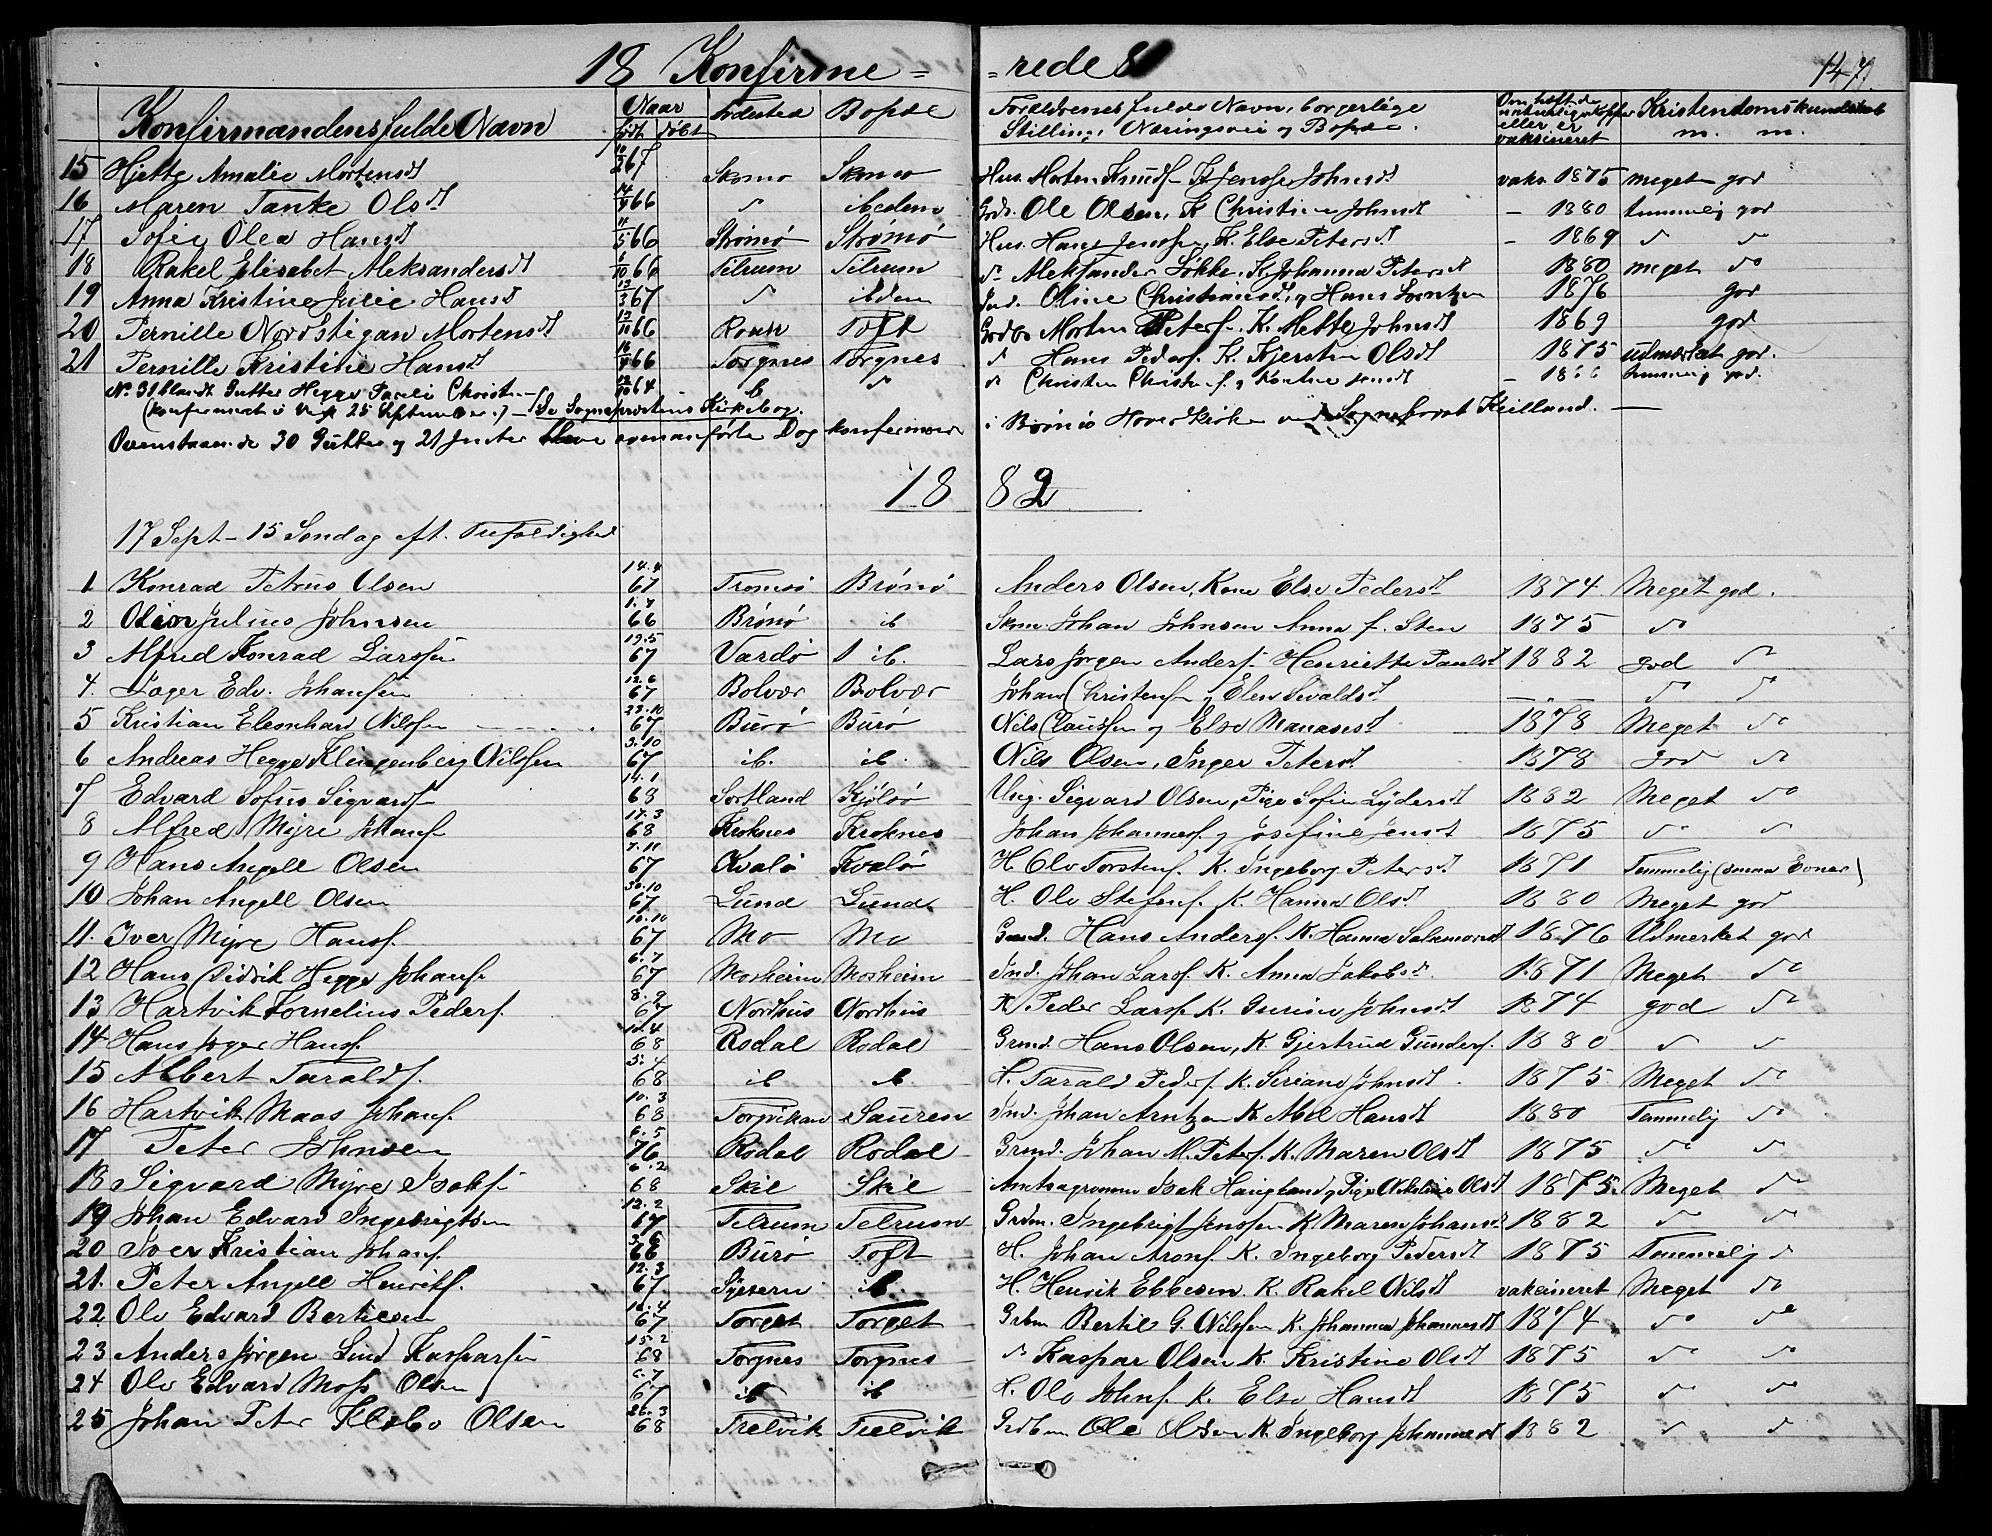 18 Konfirme= =rede 81 147.
Konfirmandens fulde Navn Naar født døbt Fødested Bopæl Forældrenes fulde Navn, borgerlige Stilling, Næringsvei og Bopæl. Om havt de naturlige Kopper eller er vaksineret Kristendomskundskab m. m.
15 Hjette Amalie Mortensdt 10/3 67 Skomo Skomo Hus. Morten Knuds. K Jensje Johnsdt vaks. 1875 meget god
16 Maren Tanke Olsdt 66 ibedem Gods. Ole Olsen, K Christine Johnsdt – 1880 temmelig god
17 Sofie Olea Hansdt 66 Strømø Strømø Hus. Hans Jensen, K. Else Petersdt – 1869 do do
18 Rakel Elisabet Aleksandersdt 66 Tilrum Tilrum do Aleksander Løkke, K. Johanna Petersdt 1880 meget do
19 Anna Kristine Julie Hansdt 67 do ibdem Ind. Oline Christiansdt, og Hans Lorntzen 1876 god
20 Pernille Nordstigan Mortensdt 66 Roan Toft Gods. Morten Peters. K. Mette Johnsdt 1869 god
21 Pernille Kristine Hansdt 66 Torgnes Torgnes do Hans Peders. K. Kjersten Olsdt 1875 udmærket god.
No. 31 blandt Gutter Hegge Pauli Christen– 64 ib do do Christen Christens. og temmelig god.
(konfirmert i Vega 25 September.) – Se Sogneprestens Kirkebog.
Ovenstaaende 30 Gutter og 21 Jenter bleve ovenanførte Dag konfirmerede i Brønø Hovedkirke ved Sogneprest Keilland. —
18 82
17 Sept – 15 Søndag eft. Trefoldighed
1 Konrad Petrus Olsen 14.4 67 Tromsø Brønø Anders Olsen, Kone Else Pedersdt 1874 Meget god.
2 Olion Julius Johnsen 1.7 66 Brønø ib Skm. Johan Johnsen Anna f. Sten 1875 do
3 Alfred Konrad Larssen 19.5 67 Vardø ib. Lars Jørgen Anders. Henriette Paulsdt 1882 god do
4. Jøger Edv. Johansen 12.6 67 Bolvær Bolvær Johan Christens. og Elen Sevaldsdt — " — do do
5 Kristian Eleonhard Nilssen 23.10 67 Burø Burø Nils Claussen og Else Manassesdt 1878 Meget do
6 Andreas Hegge Klingenberg Nilssen 3.10 67 ib. ib. Nils Olsen, Inger Petersdt 1878 god do
7 Edvard Sofus Sigvards. 14.1 68 Sortland Kjølsø Ung. Sigvard Olsen, Pige Sofie Lydersdt 1882 Meget do
8 Alfred Myre Johans. 17.3 68 Kroknes Kroknes Johan Johannes. og Josefine Jensdt 1875 do do
9 Hans Angell Olsen 7.11 67 Kvalø Kvalø H. Olv Torstens. K. Ingeborg Petersdt 1871 Temmelig (smaa Evner)
10 Johan Angell Olsen 30.10 67 Lund Lund H. Olv Stefens. K Hanna Olsdt 1880 Meget god
11. Iver Myre Hans. 10.10 67 Mo Mo Grmd. Hans Anders. K. Hanna Salamonsdt 1876 Udmerket god
12 Hans Didrik Hegge Johans. 6.7 67 Mosheim Mosheim Ind. Johan Lars. K. Anna Jakobsdt. 1871 Meget do
13 Hartvik Kornelius Peders. 8.9 67 Nordhus Nordhus H. Peder Lars. K. Gurine Johnsdt 1874 god do
14 Hans Jøger Hans. 10.4 68 Rodal Rodal Grmd. Hans Olsen, K. Gjertrud Gunders. 1880 do do
15 Albert Taralds. 5.4 68 ib ib. H. Tarald Peders. K. Seriane Johnsdt 1875 Meget do
16 Hartvik Maas Johans. 10.3 68 Torgvikan Sauren Ind. Johan Arntzen K. Abel Hansdt 1880 Temmelig do
17 Peter Johnsen 6.5 76 Rodal Rodal Grmd. Johan M. Peters. K. Maren Olsdt 1875 do do
18 Sigvard Myre Isaks. 6.2 68 Skil Skil Amtsagronom Isak Haugland og Pige Nikoline Olsdt 1875. Meget do
19 Johan Edvard Ingebrigtsen 12.2 67 Tilrum Tilrum Grdm. Ingebrigt Jenssen K. Maren Johansdt 1882 do do
20 Iver Kristian Johans. 66 Burø Toft H. Johan Arons. K. Ingeborg Pedersdt 1875 Temmelig do
21. Peter Angell Henriks. 12.3 67 ib. H. Henrik Ebbesen K. Rakel Nilsdt vaksineret Meget do
22 Olv Edvard Bertilsen 10.4 67 Torget Torget Grbm Bertil G. Nilssen K. Johanna Johannesdt 1874 do do
23 Anders Jørgen Lind Kasparsen 15.2 68 Torgnes Torgnes do Kaspar Olsen K. Kristine Olsdt 1875 do do
24 Olv Edvard Moss Olsen 6.7 67 ib ib H. Olv Johns. K. Else Hansdt 1875 do do
25 Johan Peter Klebo Olsen 26.3 68 Trelvik Trelvik Grdbm Ole Olsen K. Ingeborg Johannesdt 1882 do do